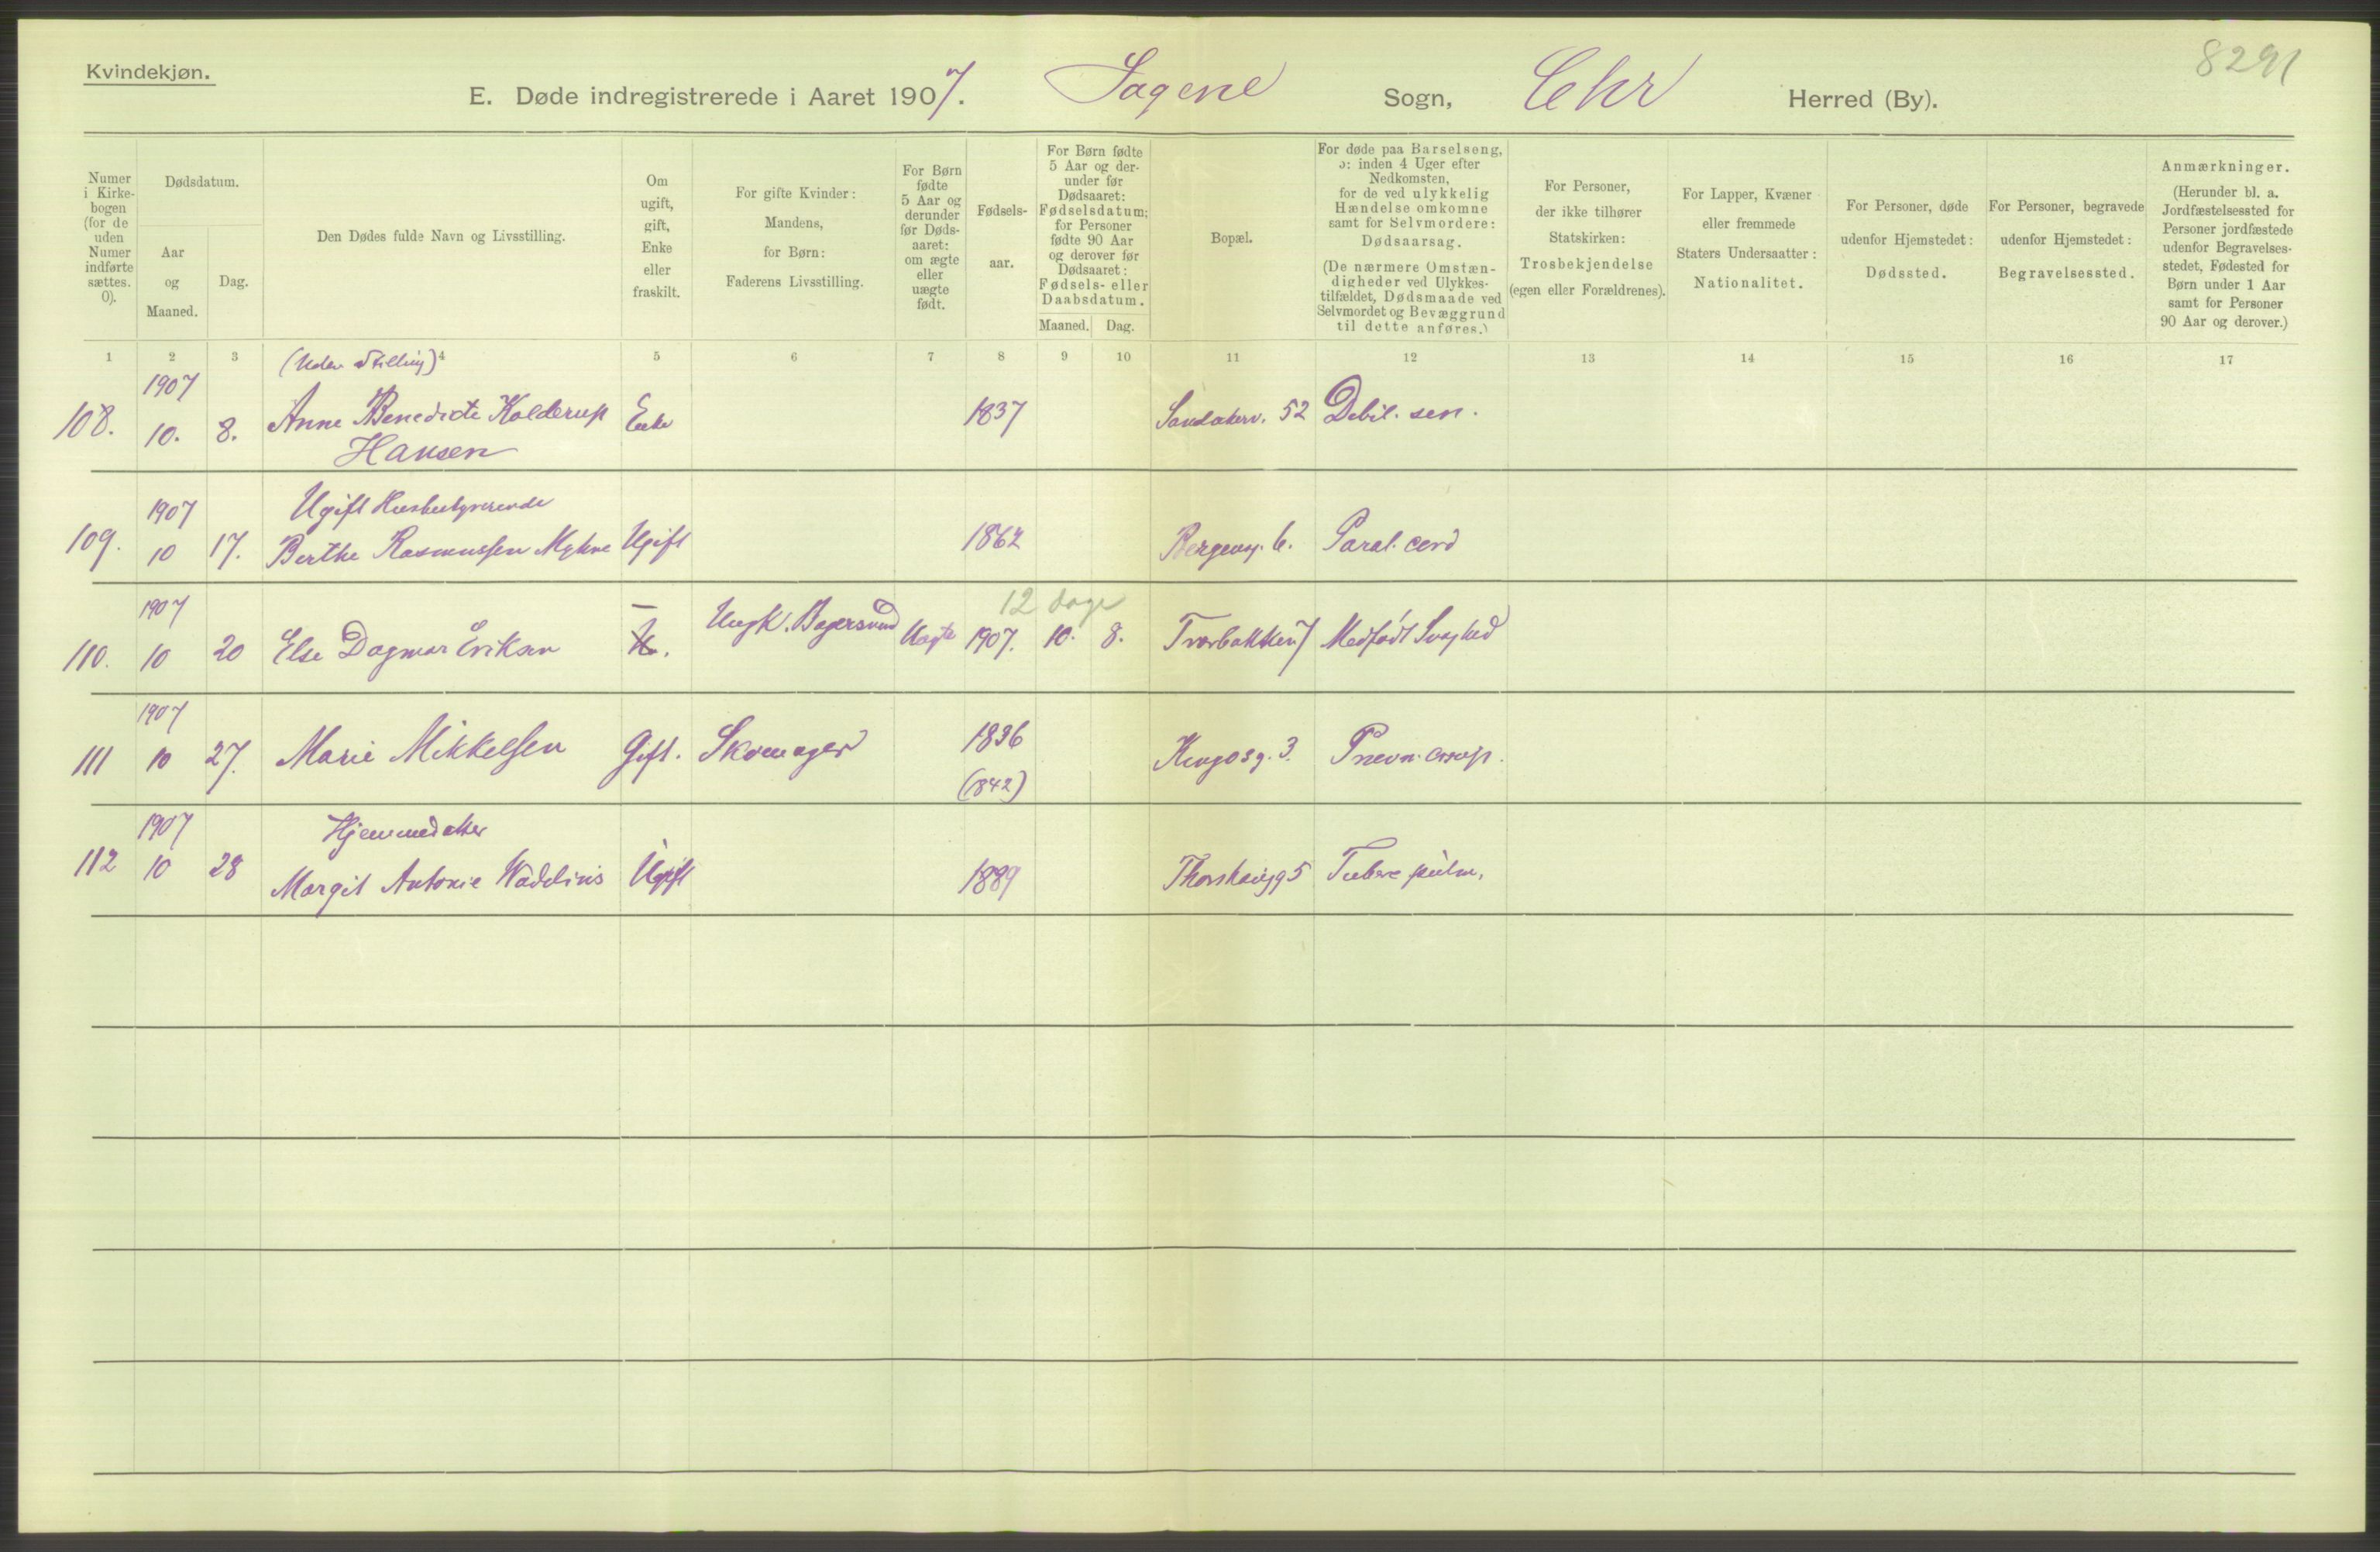 Kvindekjøn.
8291
E. Døde indregistrerede i Aaret 1907. Sagene Sogn, Chr Herred (By).
Numer i Kirkebogen (for de uden Numer indførte sættes. 0).
Dødsdatum.
Aar og Maaned.
Dag.
Den Dødes fulde Navn og Livsstilling.
Om ugift, gift, Enke eller fraskilt.
For gifte Kvinder: Mandens, for Børn: Faderens Livsstilling.
For Børn fødte 5 Aar og derunder før Dødsaaret: om ægte eller uægte født.
Fødselsaar.
For Børn fødte 5 Aar og derunder før Dødsaaret: Fødselsdatum; for Personer fødte 90 Aar og derover før Dødsaaret: Fødsels- eller Daabsdatum.
Maaned. Dag.
Bopæl.
For døde paa Barselseng, ɔ: inden 4 Uger efter Nedkomsten, for de ved ulykkelig Hændelse omkomne samt for Selvmordere: Dødsaarsag.
(De nærmere Omstændigheder ved Ulykkestilfældet, Dødsmaade ved Selvmordet og Bevæggrund til dette anføres.)
For Personer, der ikke tilhører Statskirken: Trosbekjendelse (egen eller Forældrenes).
For Lapper, Kvæner eller fremmede Staters Undersaatter: Nationalitet.
For Personer, døde udenfor Hjemstedet: Dødssted.
For Personer, begravede udenfor Hjemstedet: Begravelsessted.
Anmærkninger.
(Herunder bl. a. Jordfæstelsessted for Personer jordfæstede udenfor Begravelsesstedet, Fødested for Børn under 1 Aar samt for Personer 90 Aar og derover.)
1 2 3 4 5 6 7 8 9 10 11 12 13 14 15 16 17
(Uden Stilling)
1907
108. 10. 8. Anne Benedicte Kolderup Enke 1837 Sandakerv. 52 Debil. sen.
Hansen
1907 Ugift Husbestyrerinde
109. 10 17. Berthe Rasmussen Myhre Ugift 1862 Bergensg. 6. Paral. cord
1907 — 12 dage
110. 10 20 Else Dagmar Eriksen U. Ungk. Bagersvend Uægte 1907. 10. 8. Tværbakken 7 Medfødt Svaghed
1907
111 10 27. Marie Mikkelsen Gift. Skomager 1836 Kingosg. 3. Pnevn. croup.
(1842)
1907 Hjemmedatter
112 10 28 Margit Antonie Ugift 1889 Thorshaugg 5 Tuberc pulm.